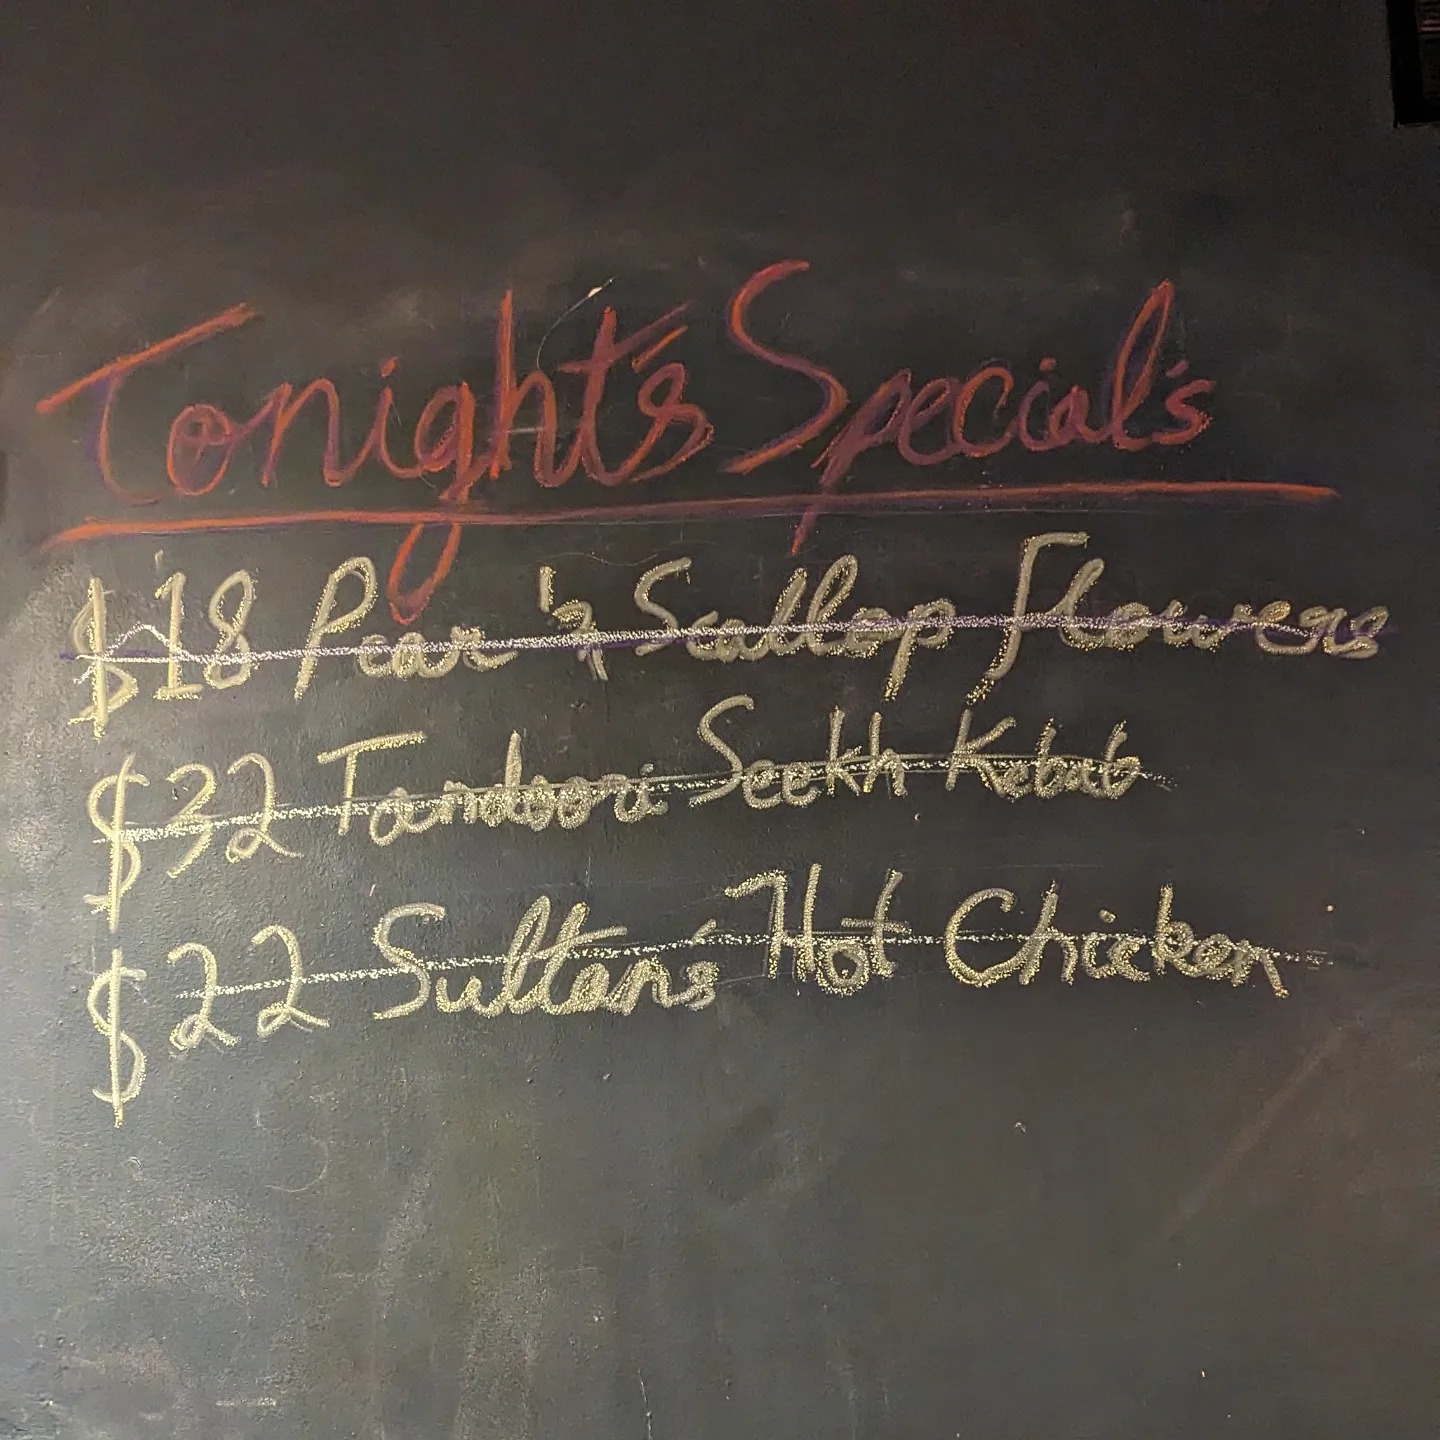 Tonight's Special's
$18 Pear & Scallop Flowers
$32 Tandoori Seekh Kebab
$22 Sultan's Hot Chicken